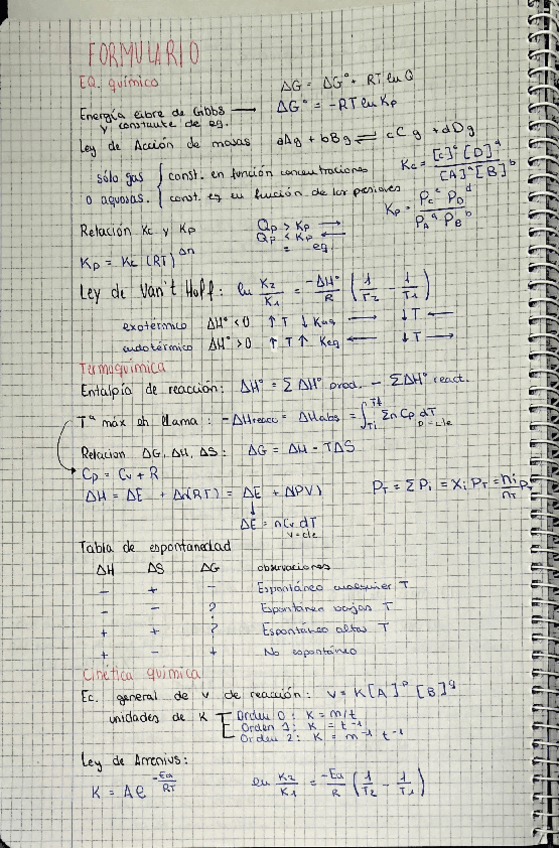 FORMULARIO
EQ. químico
ΔG = ΔG° + RT ln Q
Energía libre de Gibbs → ΔG° = -RT ln Kp
y constante de eq.
Ley de Acción de masas aAg + bBg ⇌ cCg + dDg
sólo gas { const. en función concentraciones Kc = [C]^c [D]^d / [A]^a [B]^b
o aquosas. { const. eq en función de las presiones Kp = Pc^c PD^d / PA^a PB^b
Relación Kc y Kp Qp > Kp →
Qp < Kp ←
= eq
Kp = Kc (RT)^Δn
Ley de Van't Hoff: ln K2/K1 = -ΔH°/R (1/T2 - 1/T1)
exotérmico ΔH° < 0 ↑T ↓Keq ← ↓T ←
endotérmico ΔH° > 0 ↑T ↑Keq ← ↓T →
Termoquímica
Entalpía de reacción: ΔH° = Σ ΔH° prod. - ΣΔH° react.
Tª máx eh llama: -ΔHreacc = ΔHabs = ∫Ti Tf Σn Cp dT
p = cte
Relacion ΔG, ΔH, ΔS: ΔG = ΔH - TΔS
Cp = Cv + R
ΔH = ΔE + Δn(RT) = ΔE + Δ(PV) PT = ΣPi = Xi PT = ni/nT PT
↓
ΔE = nCv dT
v = cte
Tabla de espontanedad
ΔH ΔS ΔG observaciones
- + - Espontáneo cualquier T
- - ? Espontáneo bajas T
+ + ? Espontáneo altas T
+ - + No espontáneo
Cinética química
Ec. general de v de reacción: v = K[A]^p [B]^q
unidades de K [ Orden 0: K = m/t
Orden 1: K = t^-1
Orden 2: K = m^-1 t^-1
Ley de Arrenius:
K = Ae^-Ea/RT ln K2/K1 = -Ea/R (1/T2 - 1/T1)